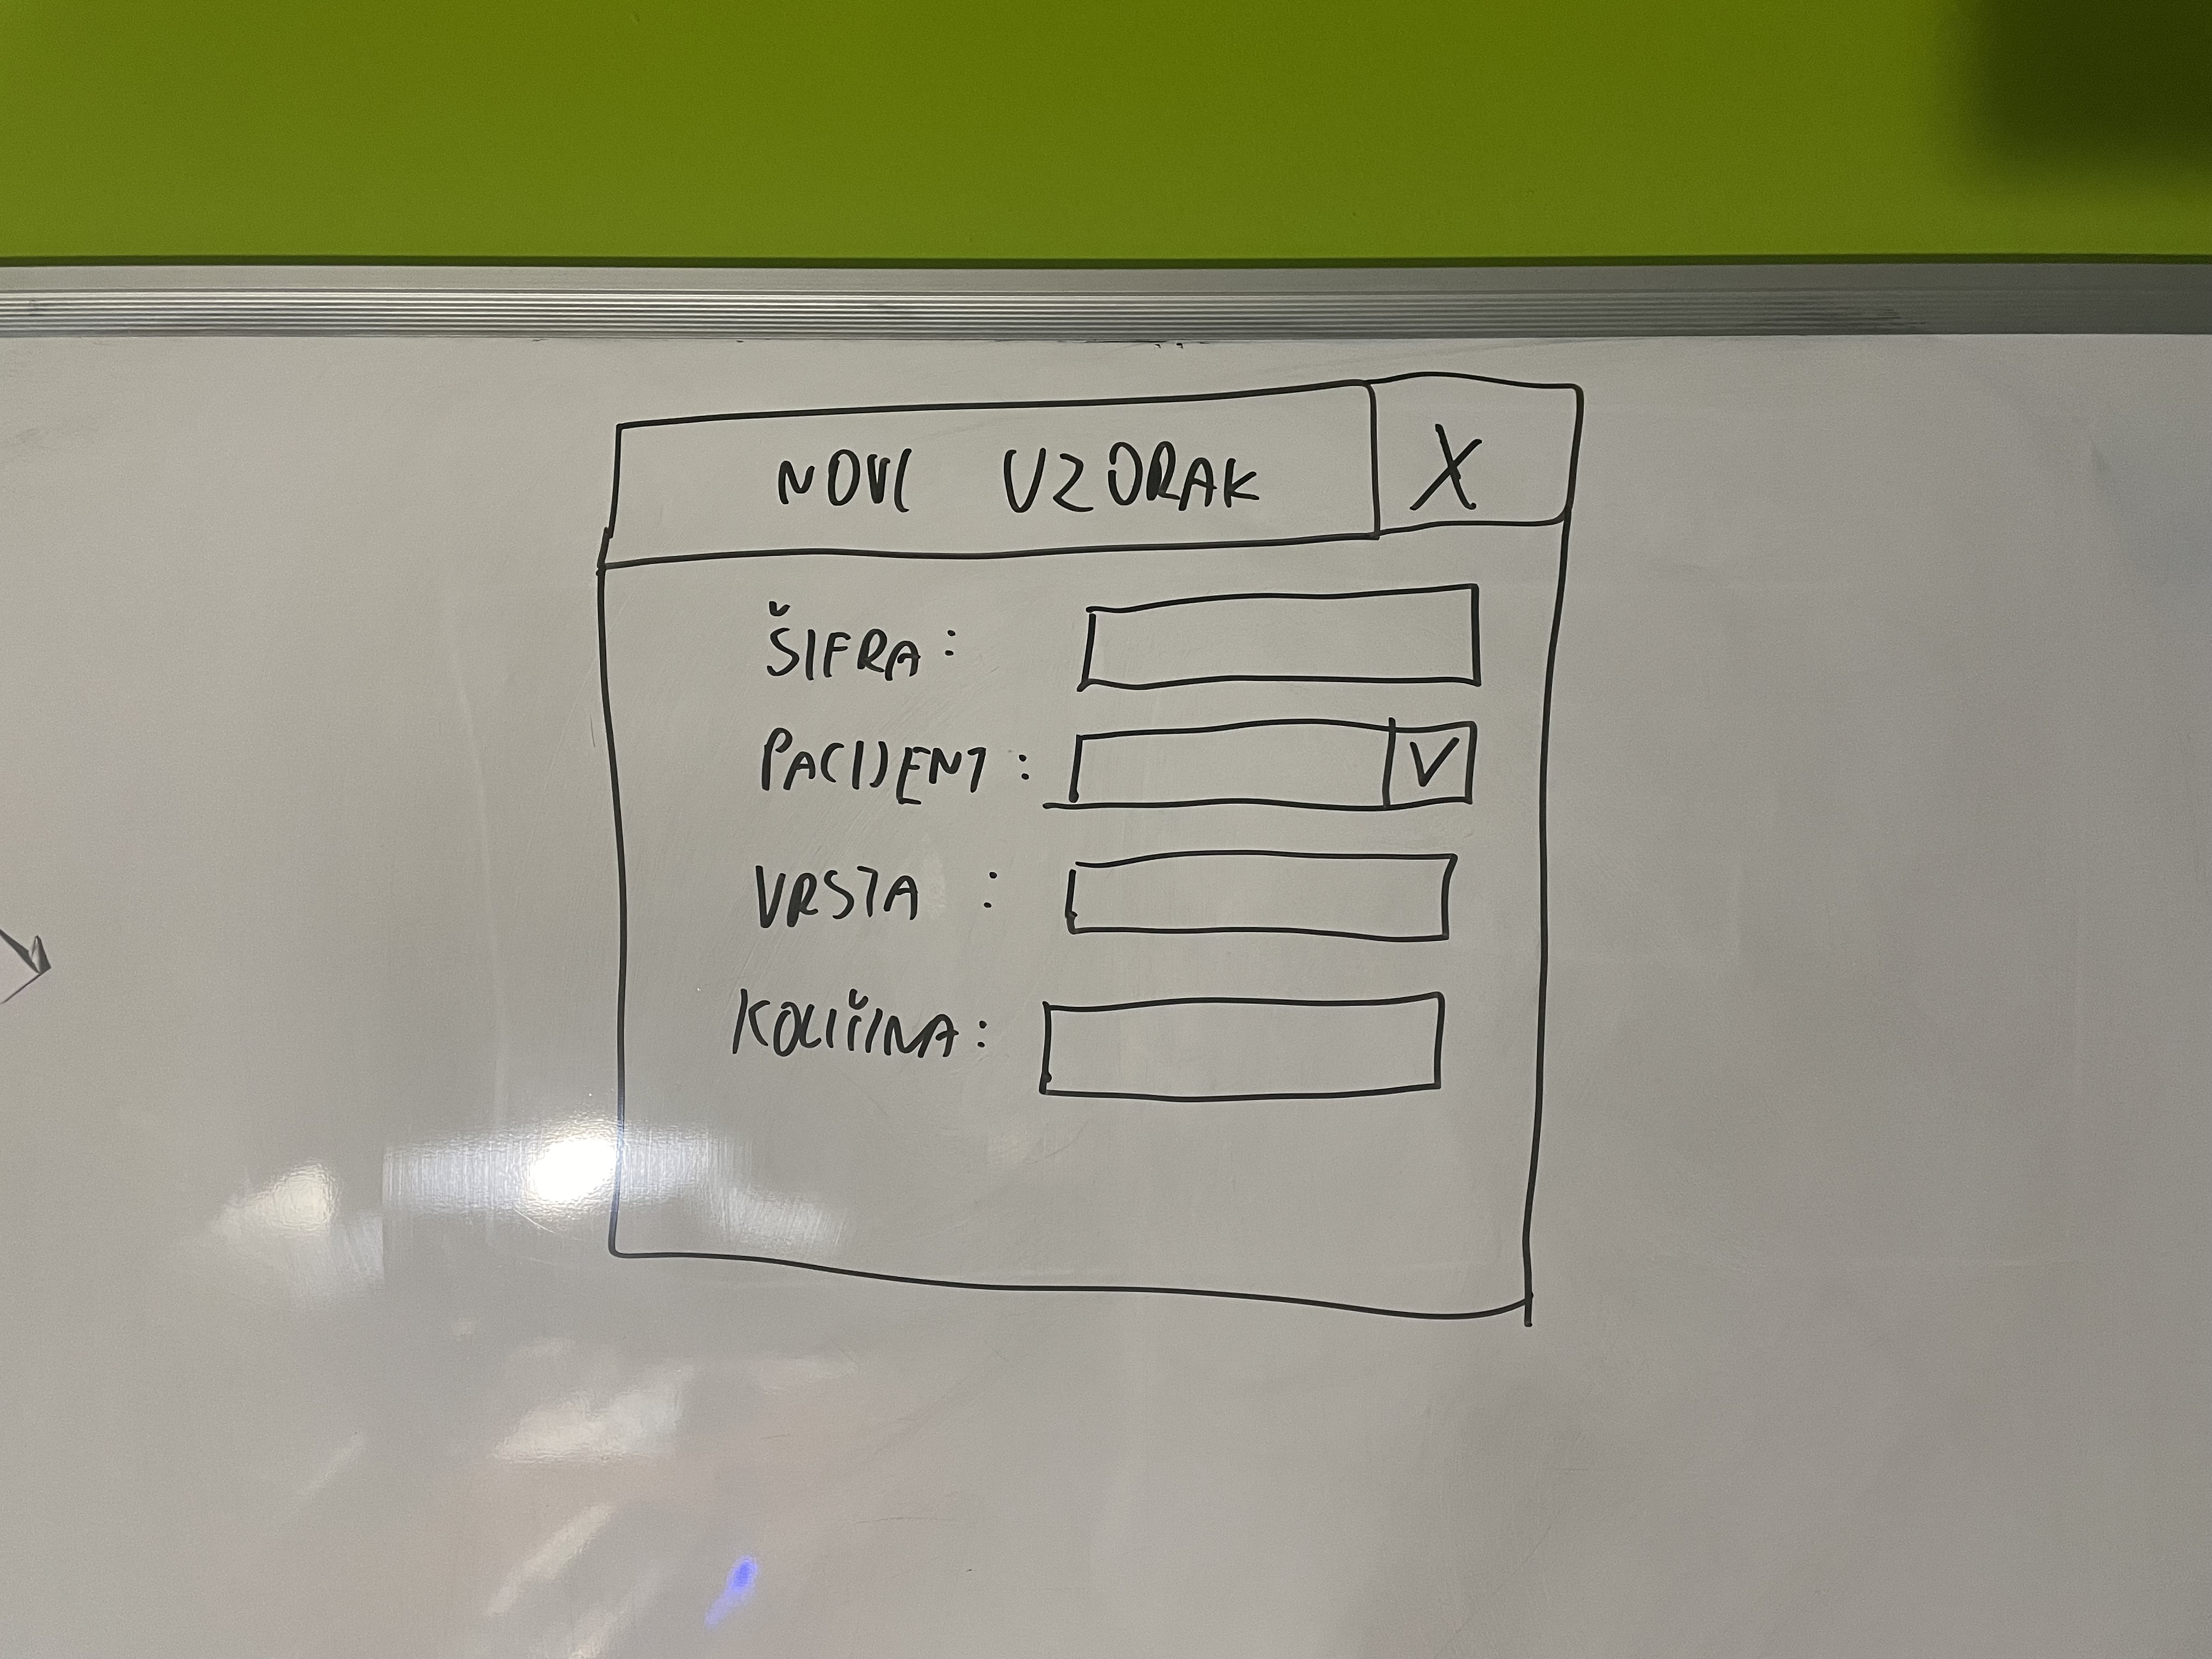 NOVI UZORAK X
ŠIFRA:
PACIJENT: V
VRSTA :
KOLIČINA: